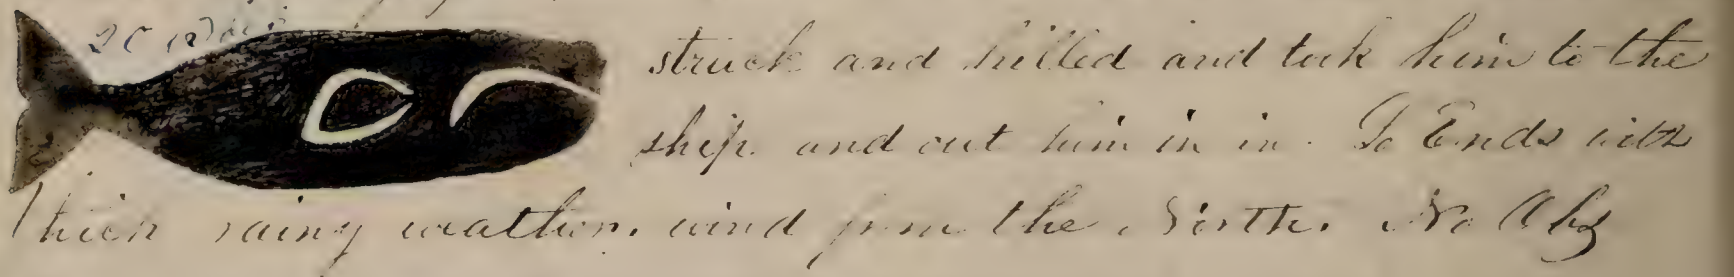 struck and killed and took him to the
ship. and cut him in in. So Ends with
thick rainy weather. wind from the North. No Obs